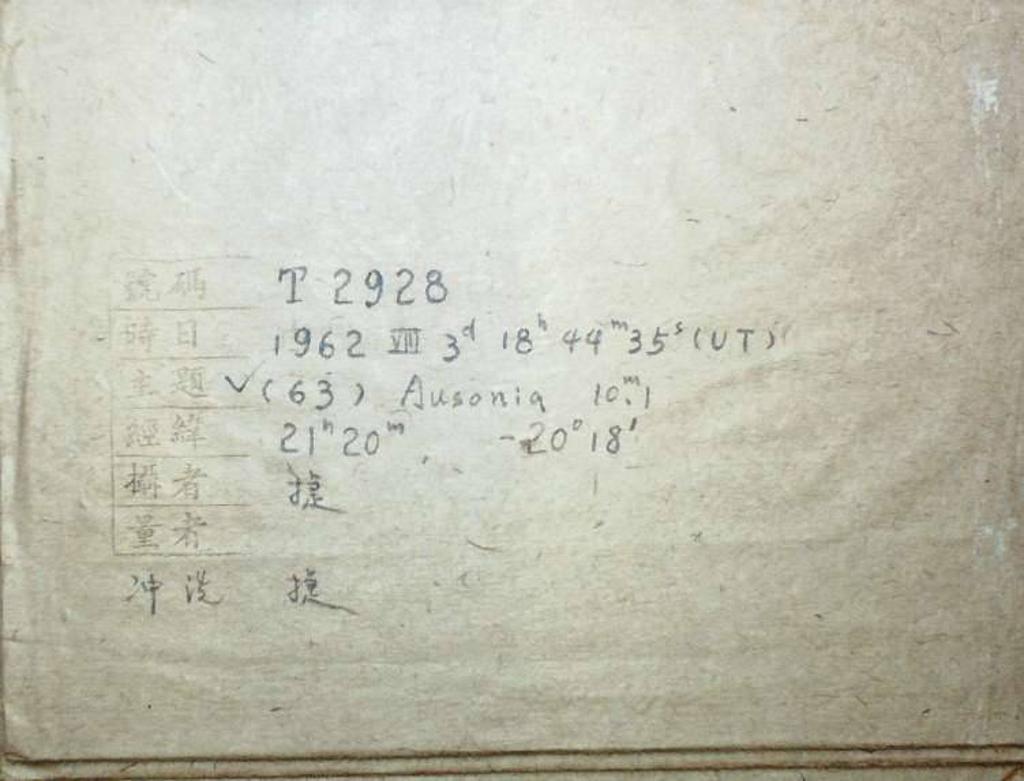 號碼 T 2928
時日 1962 VIII 3ᵈ 18ʰ 44ᵐ 35ˢ (UT)
主題 ✓ (63) Ausonia 10ᵐ.1
經緯 21ʰ 20ᵐ -20° 18'
攝者 捷
量者
冲洗 捷